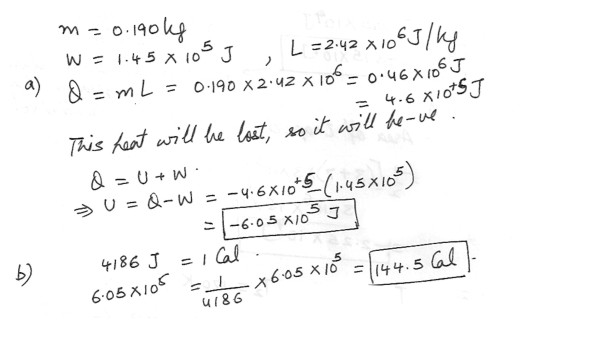 m = 0.190 kg
W = 1.45 × 10⁵ J , L = 2.42 × 10⁶ J/kg
a) Q = mL = 0.190 × 2.42 × 10⁶ = 0.46 × 10⁶ J
= 4.6 × 10⁺⁵ J
This heat will be lost, so it will be -ve.
Q = U + W.
⇒ U = Q - W = -4.6 × 10⁺⁵ - (1.45 × 10⁵)
= -6.05 × 10⁵ J
b) 4186 J = 1 Cal.
6.05 × 10⁵ = 1/4186 × 6.05 × 10⁵ = 144.5 Cal.